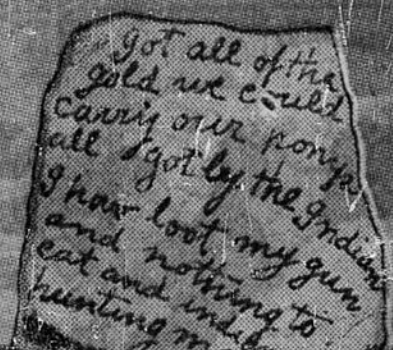 got all of the
gold we could
carry our ponys
all got by the Indian
I hav lost my gun
and nothing to
eat and indians
hunting m